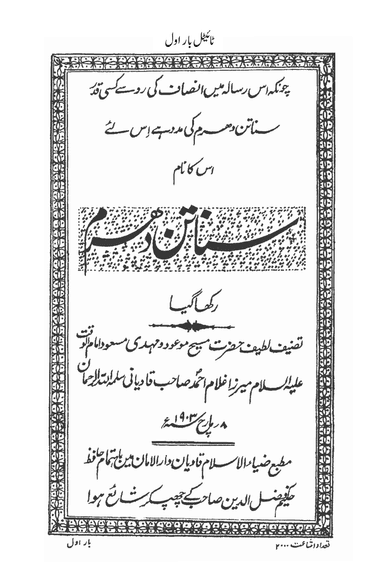 ٹائیٹل بار اول
چونکہ اس رسالہ میں انصاف کی رو سے کسی قدر
سناتن دھرم کی مدد ہے اس لئے
اس کا نام
سناتن دھرم
رکھا گیا
تصنیف لطیف حضرت مسیح موعود و مہدی مسعود امام الوقت
علیہ السلام میرزا غلام احمد صاحب قادیانی سلمہ اللہ الرحمان
۸؍ مارچ ۱۹۰۳ء
مطبع ضیاء الاسلام قادیان دارالامان میں باہتمام حافظ
حکیم فضل الدین صاحب کے چھپ کر شائع ہوا
تعداد اشاعت ۲۰۰۰
بار اول